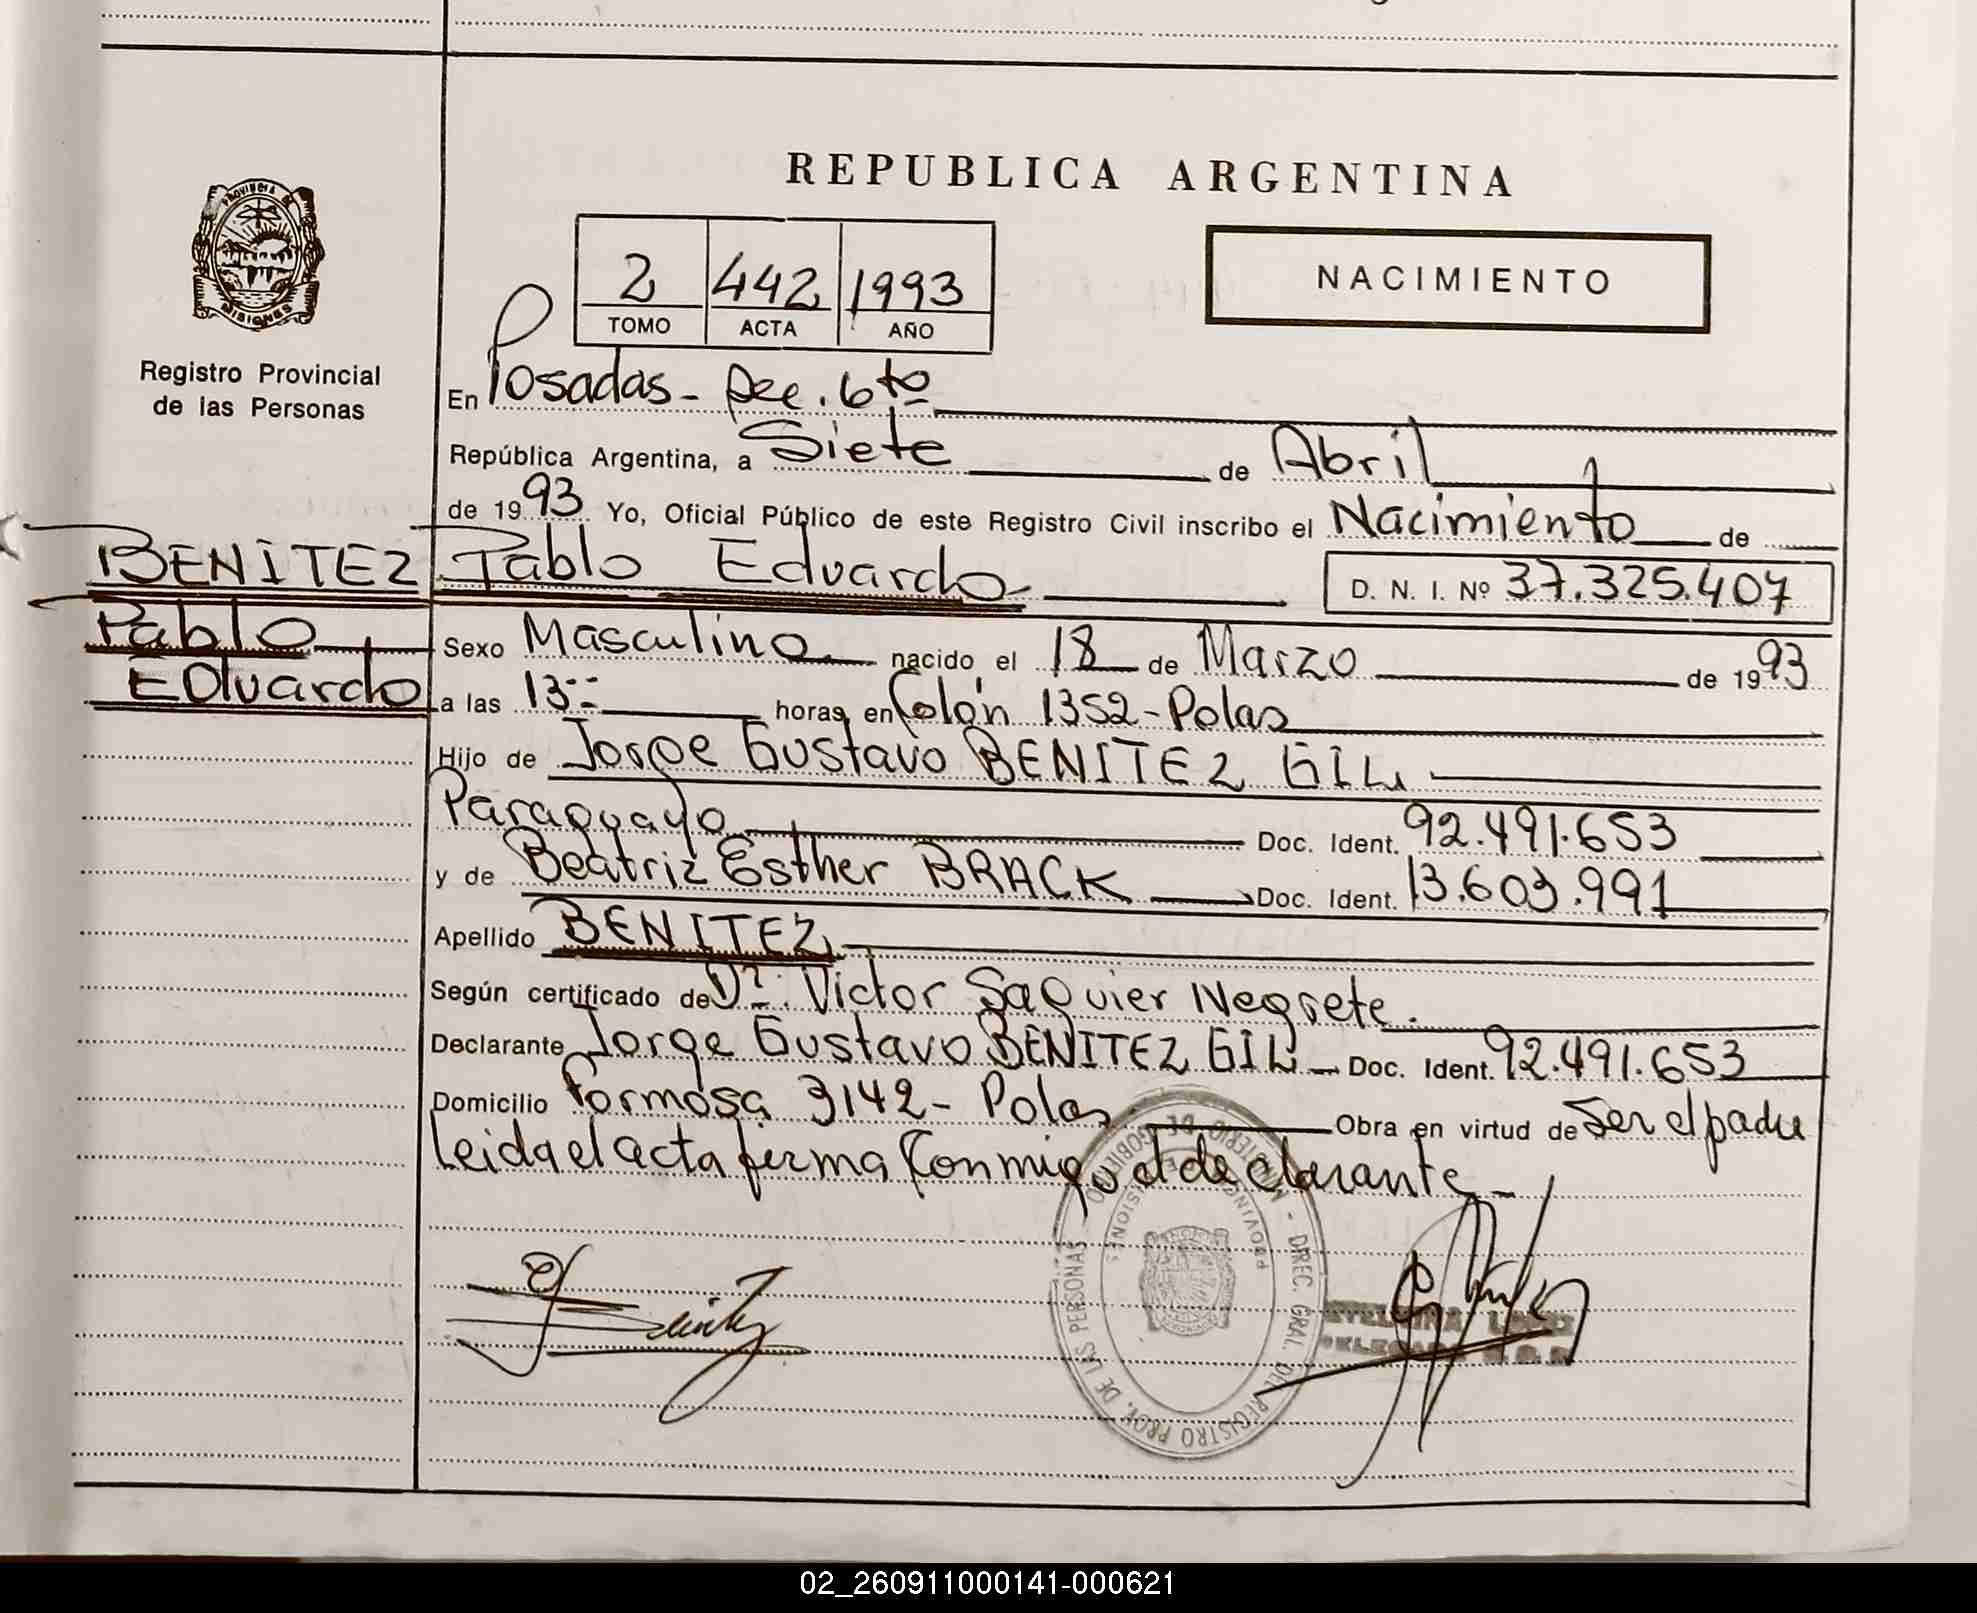 REPUBLICA ARGENTINA
PROVINCIA DE
MISIONES
Registro Provincial
de las Personas
2 442 1993
TOMO ACTA AÑO
NACIMIENTO
En Posadas - Dee. 6to
República Argentina, a Siete de Abril
de 1993 Yo, Oficial Público de este Registro Civil inscribo el Nacimiento de
BENITEZ Pablo Eduardo D. N. I. Nº 37.325.407
Pablo
Sexo Masculino nacido el 18 de Marzo de 1993
Eduardo
a las 13-- horas, en Colón 1352-Pdas
Hijo de Jorge Gustavo BENITEZ GIL
Paraguayo Doc. Ident. 92.491.653
y de Beatriz Esther BRACK Doc. Ident. 13.603.991
Apellido BENITEZ
Según certificado de Dr. Victor Saguier Negrete.
Declarante Jorge Gustavo BENITEZ GIL - Doc. Ident. 92.491.653
Domicilio Formosa 3142- Pdas Obra en virtud de Ser el padre
Leida el acta firma Conmigo el declarante -
MINISTERIO DE GOBIERNO - DIREC. GRAL. DEL REGISTRO PROV. DE LAS PERSONAS
PROVINCIA DE MISIONES
02_260911000141-000621